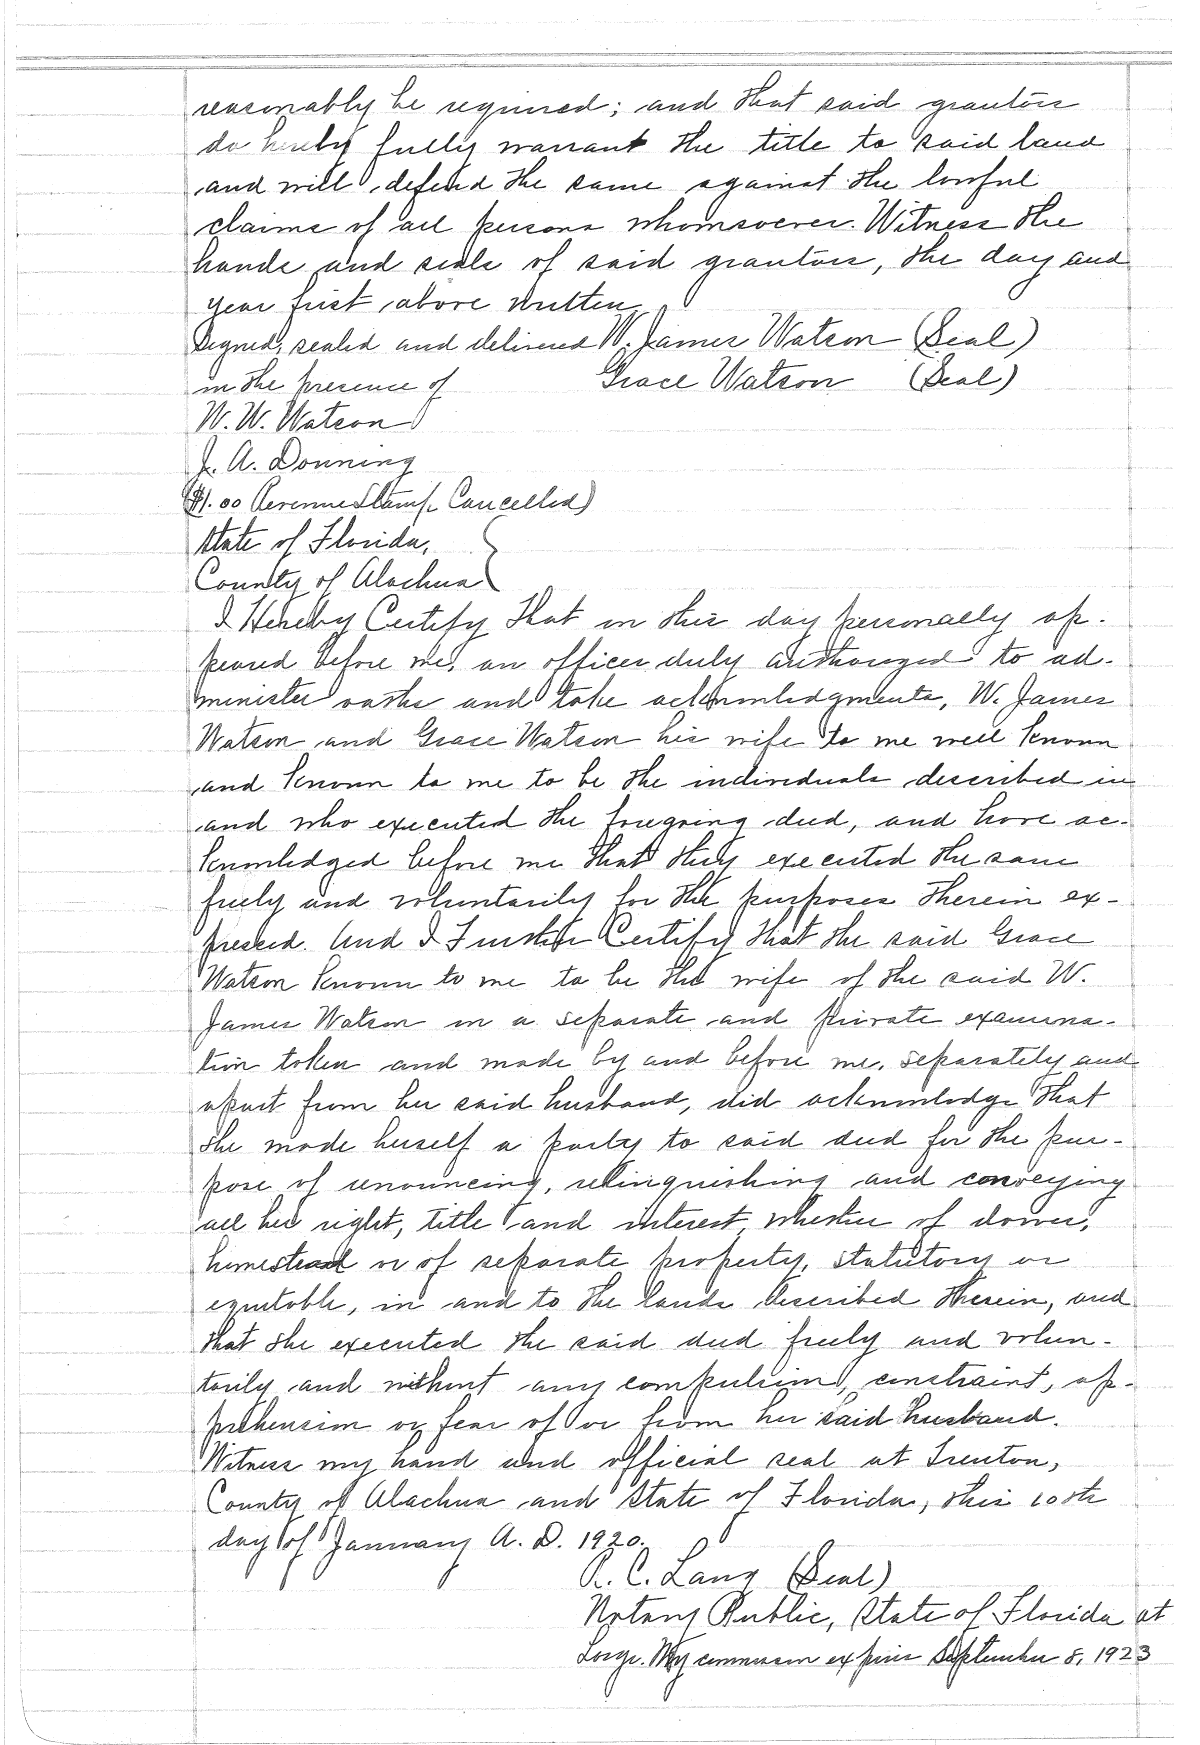 reasonably be required; and that said grantors
do hereby fully warrant the title to said land
and will defend the same against the lawful
claims of all persons whomsoever. Witness the
hands and seals of said grantors, the day and
year first above written.
Signed, sealed and delivered W. James Watson (Seal)
in the presence of Grace Watson (Seal)
W. W. Watson
J. A. Donning
($1.00 Revenue Stamp Cancelled)
State of Florida,
County of Alachua
I Hereby Certify That in this day personally ap-
peared before me, an officer duly authorized to ad-
minister oaths and take acknowledgments, W. James
Watson and Grace Watson his wife to me well known
and known to me to be the individuals described in
and who executed the foregoing deed, and have ac-
knowledged before me that they executed the same
freely and voluntarily for the purposes therein ex-
pressed. And I Further Certify that the said Grace
Watson known to me to be the wife of the said W.
James Watson in a separate and private examina-
tion taken and made by and before me, separately and
apart from her said husband, did acknowledge that
she made herself a party to said deed for the pur-
pose of renouncing, relinquishing and conveying
all her right, title and interest, whether of dower,
homestead or of separate property, statutory or
equitable, in and to the lands described therein, and
that she executed the said deed freely and volun-
tarily and without any compulsion, constraint, ap-
prehension or fear of or from her said husband.
Witness my hand and official seal at Trenton,
County of Alachua and State of Florida, this 10th
day of January A. D. 1920.
R. C. Lang (Seal)
Notary Public, State of Florida at
Large. My commission expires September 8, 1923